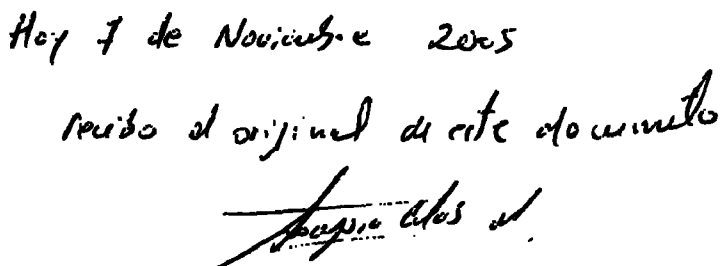 Hoy 7 de Noviembre 2005
recibo el original de este documento